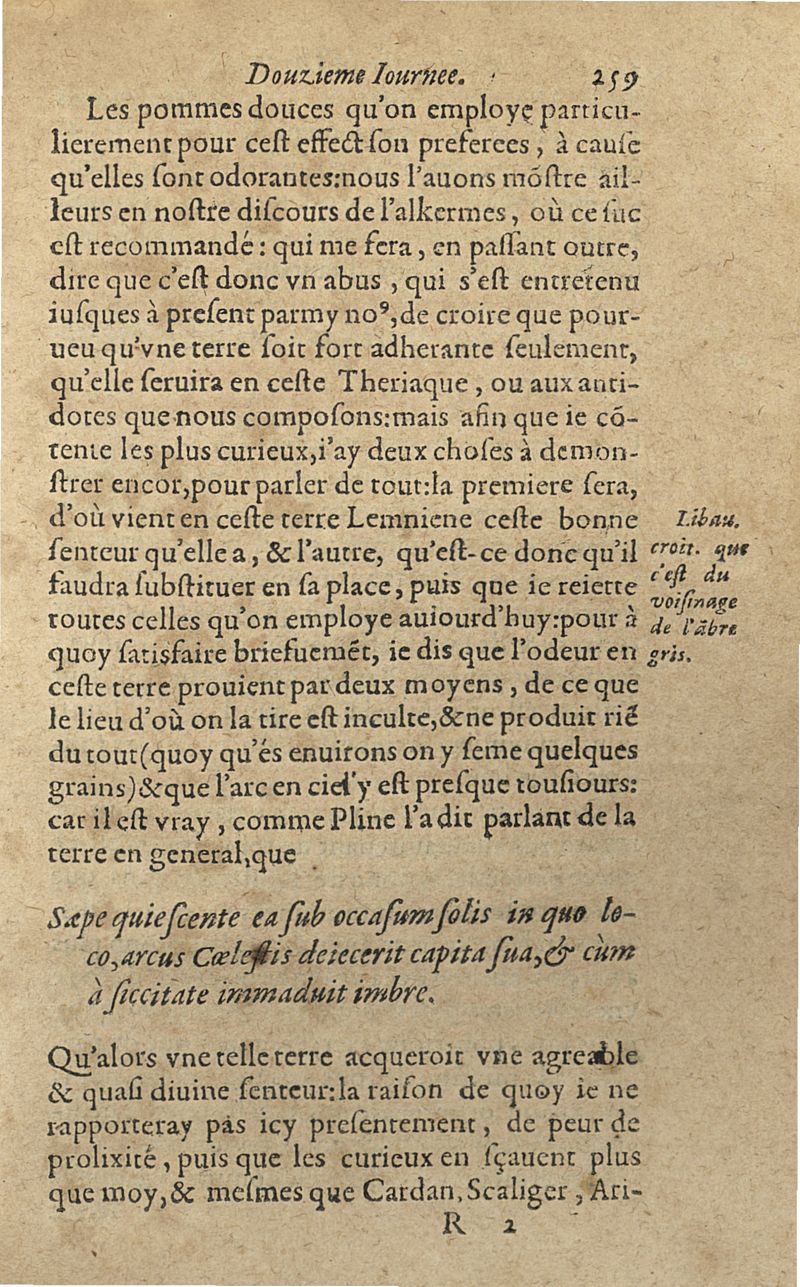 Douzieme Iournee. 259
Les pommes douces qu'on employe particu-
lierement pour ceſt effect ſon preferees, à cauſe
qu'elles ſont odorantes:nous l'auons mõſtre ail-
leurs en noſtre diſcours de l'alkermes, où ce ſuc
eſt recommandé: qui me fera, en paſſant outre,
dire que c'eſt donc vn abus, qui s'eſt entretenu
iuſques à preſent parmy noꝰ,de croire que pour-
ueu qu'vne terre ſoit fort adherante ſeulement,
qu'elle ſeruira en ceſte Theriaque, ou aux anti-
dotes que nous compoſons:mais afin que ie cõ-
tente les plus curieux,i'ay deux choſes à demon-
ſtrer encor,pour parler de tout:la premiere ſera,
d'où vient en ceſte terre Lemniene ceſte bonne
ſenteur qu'elle a, & l'autre, qu'eſt-ce donc qu'il
faudra ſubſtituer en ſa place, puis que ie reiette
toutes celles qu'on employe auiourd'huy:pour à
quoy ſatisfaire briefuemẽt, ie dis que l'odeur en
ceſte terre prouient par deux moyens, de ce que
le lieu d'où on la tire eſt inculte,&ne produit riẽ
du tout(quoy qu'és enuirons on y ſeme quelques
grains)&que l'arc en ciel'y eſt preſque touſiours:
car il eſt vray, comme Pline l'a dit parlant de la
terre en general,que
Libau.
croit. que
c'eſt du
voiſinage
de l'ãbre
gris.
Sæpe quieſcente ea ſub occaſum ſolis in quo lo-
co,arcus Cœleſtis deiecerit capita ſua,& cùm
à ſiccitate immaduit imbre.
Qu'alors vne telle terre acqueroit vne agreable
& quaſi diuine ſenteur:la raiſon de quoy ie ne
rapporteray pas icy preſentement, de peur de
prolixité, puis que les curieux en ſçauent plus
que moy,& meſmes que Cardan, Scaliger, Ari-
R 2